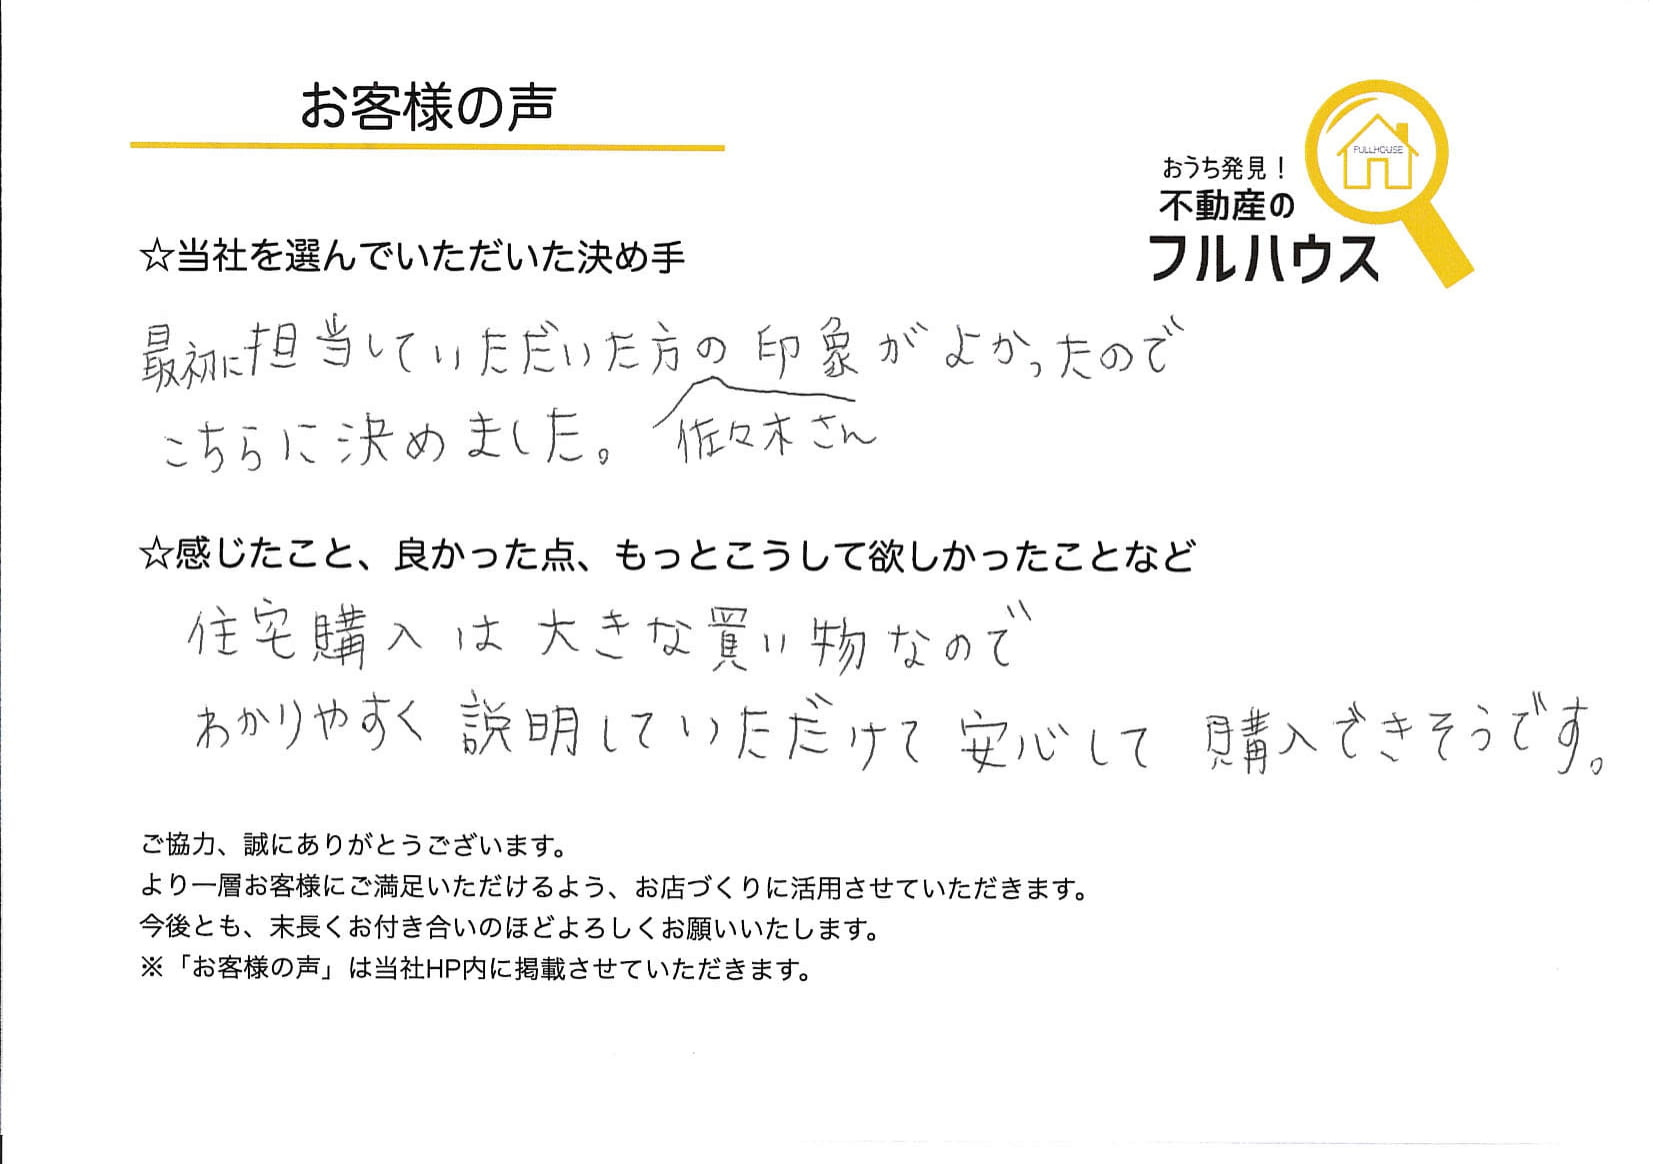 お客様の声
FULLHOUSE
おうち発見！
不動産の
フルハウス
☆当社を選んでいただいた決め手
最初に担当していただいた方の印象がよかったので
こちらに決めました。 佐々木さん
☆感じたこと、良かった点、もっとこうして欲しかったことなど
住宅購入は大きな買い物なので
わかりやすく説明していただけて安心して購入できそうです。
ご協力、誠にありがとうございます。
より一層お客様にご満足いただけるよう、お店づくりに活用させていただきます。
今後とも、末長くお付き合いのほどよろしくお願いいたします。
※「お客様の声」は当社HP内に掲載させていただきます。